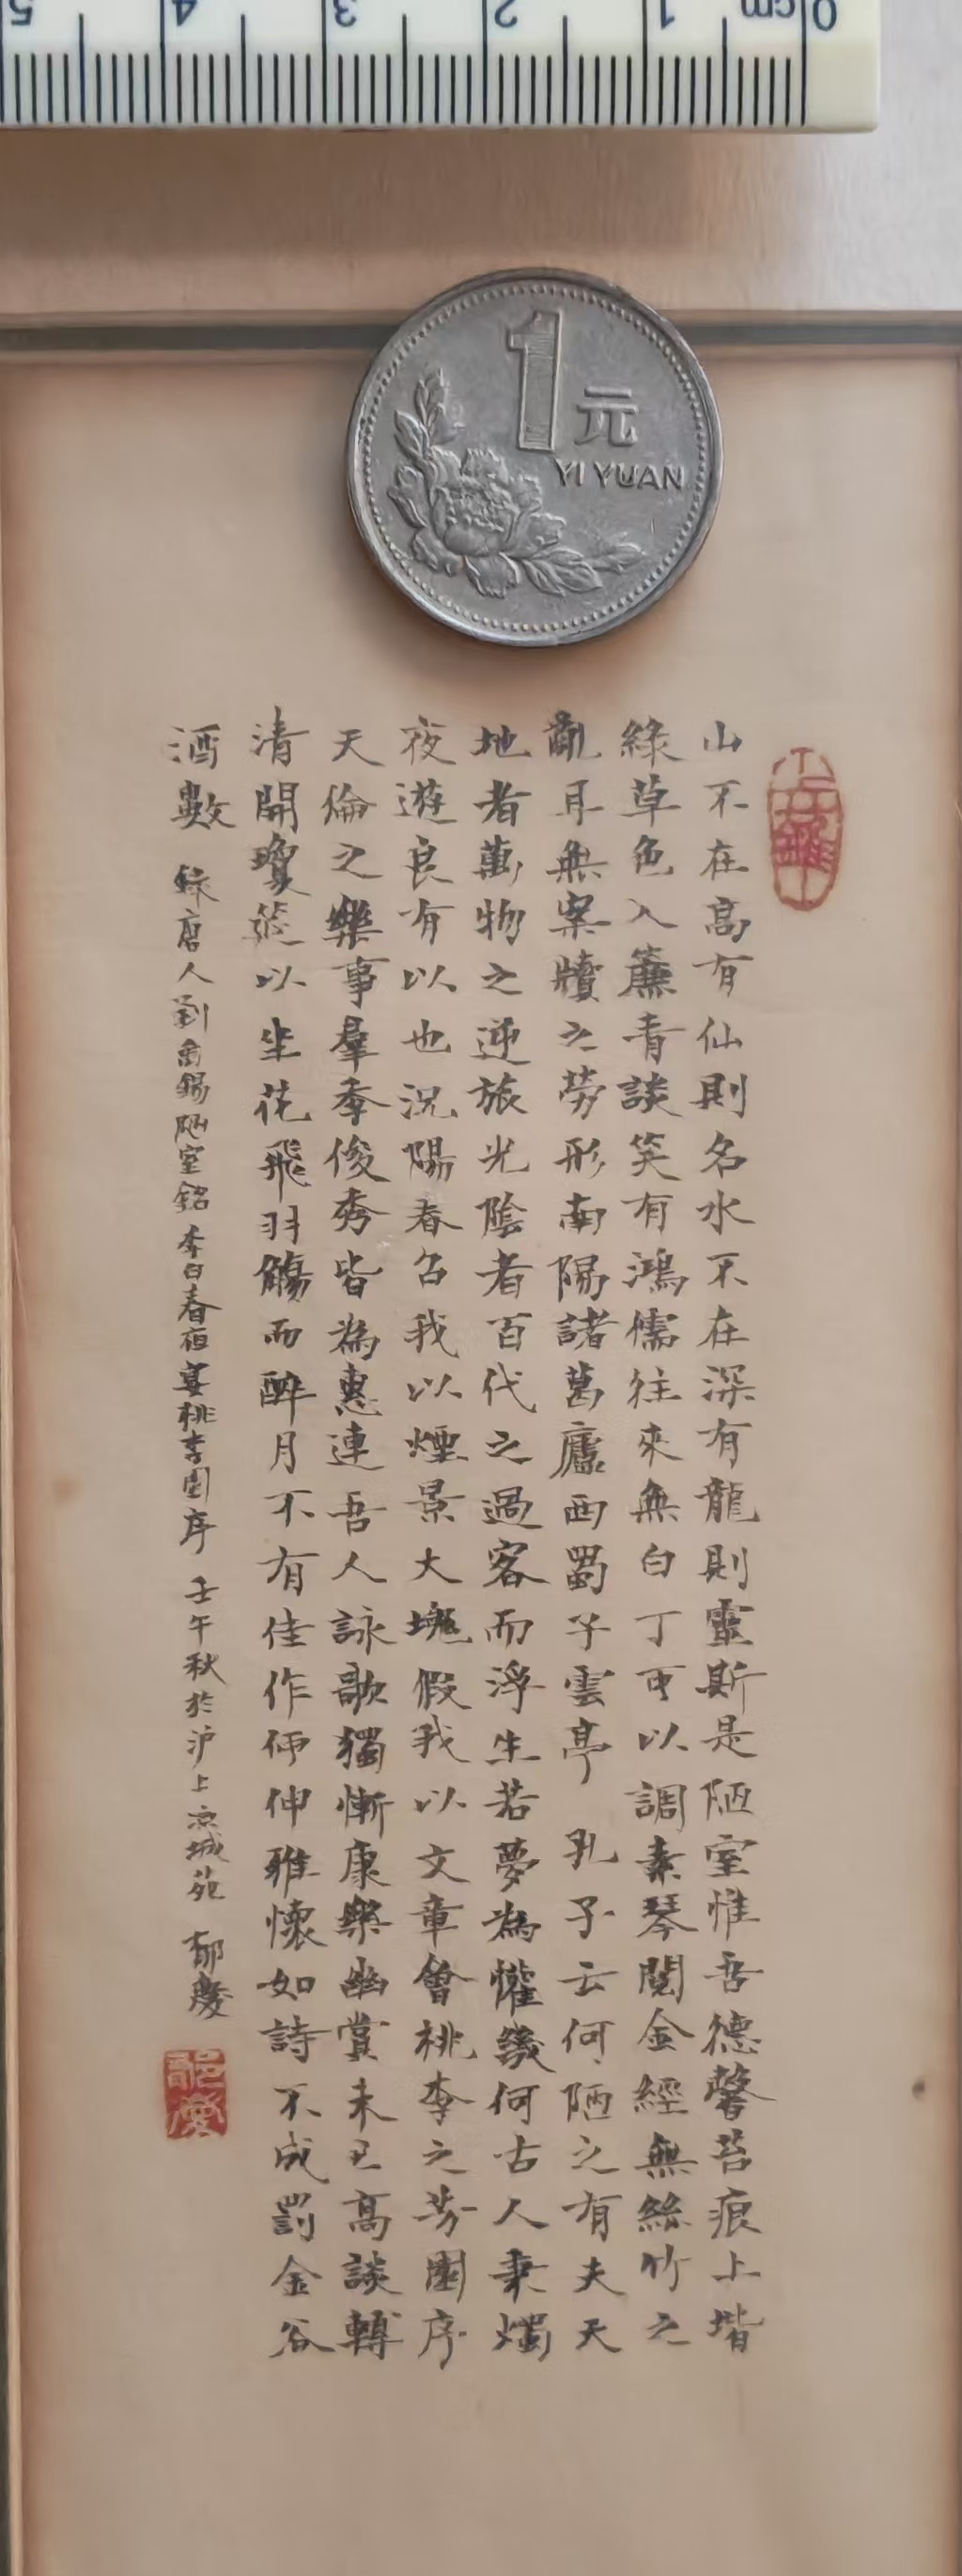 0cm 1 2 3 4 5
1元
YI YUAN
山不在高有仙則名水不在深有龍則靈斯是陋室惟吾德馨苔痕上堦
綠草色入簾青談笑有鴻儒往來無白丁可以調素琴閱金經無絲竹之
亂耳無案牘之勞形南陽諸葛廬西蜀子雲亭 孔子云何陋之有夫天
地者萬物之逆旅光陰者百代之過客而浮生若夢為懽幾何古人秉燭
夜遊良有以也況陽春召我以煙景大塊假我以文章會桃李之芳園序
天倫之樂事羣季俊秀皆為惠連吾人詠歌獨慚康樂幽賞未已高談轉
清開瓊筵以坐花飛羽觴而醉月不有佳作何伸雅懷如詩不成罰金谷
酒數 錄唐人劉禹錫陋室銘 李白春夜宴桃李園序 壬午秋於沪上凉城苑 郁慶